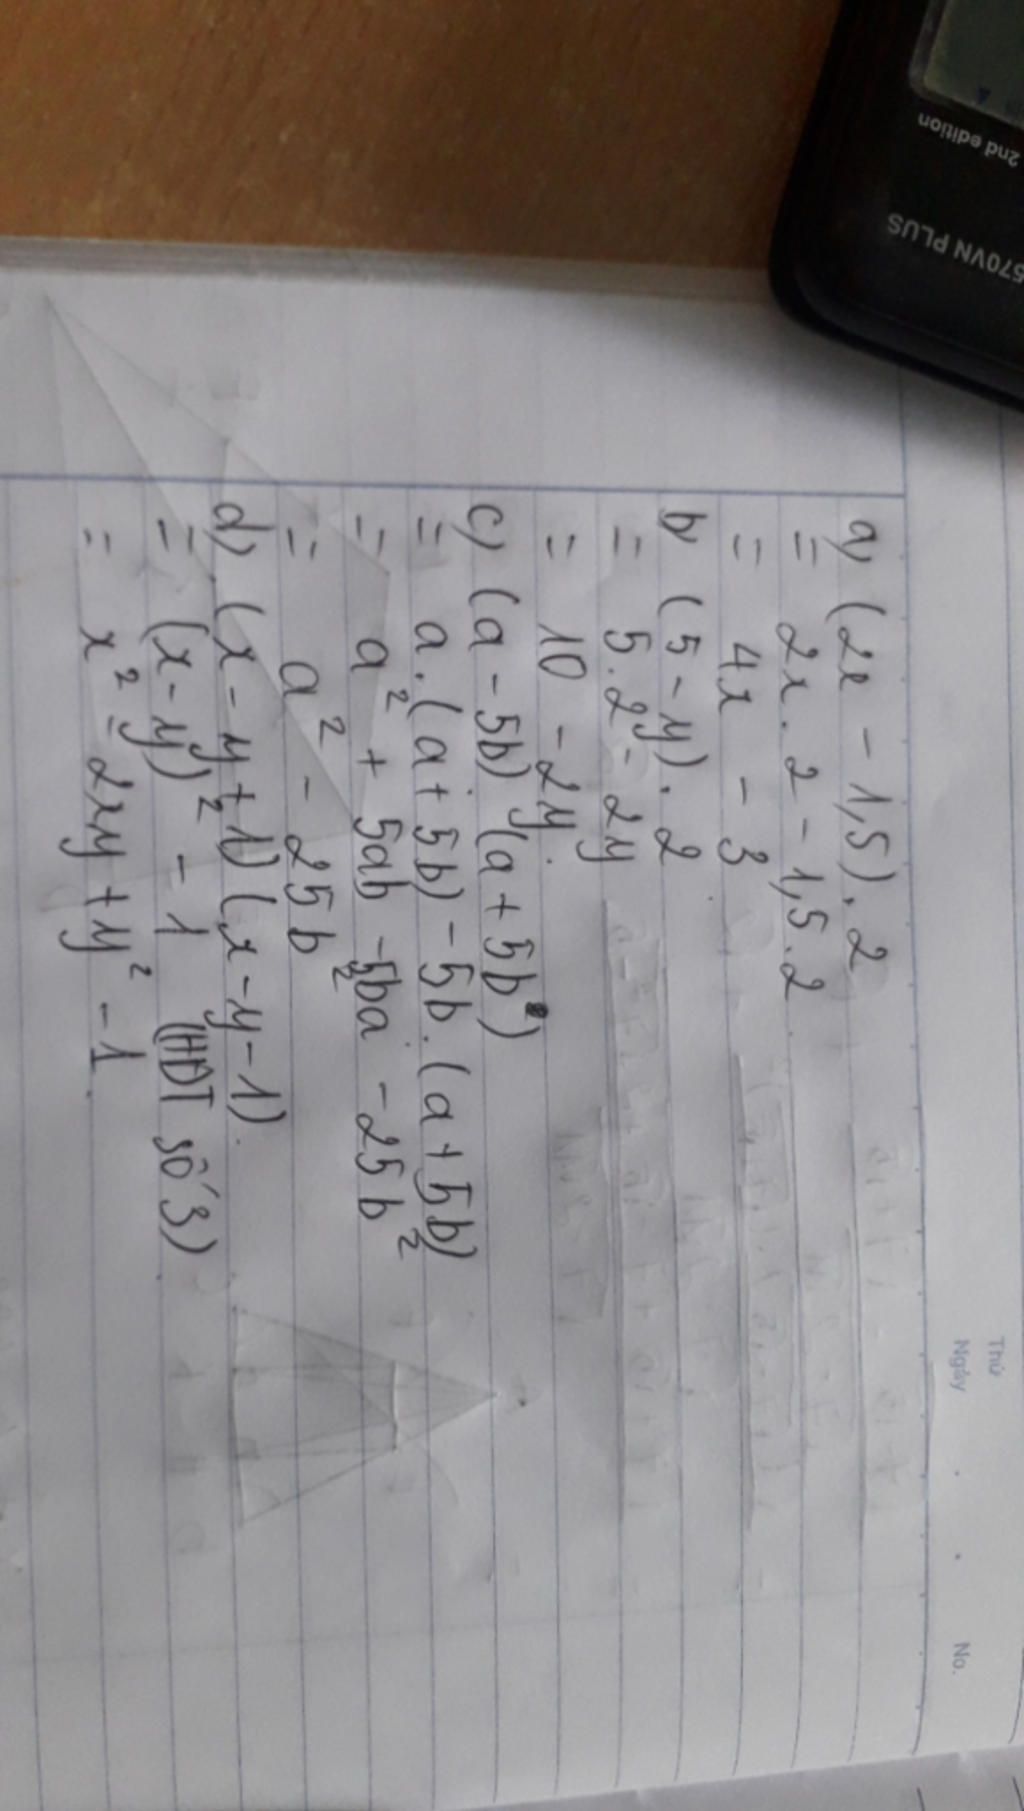 2nd edition
570VN PLUS
Thứ
Ngày
No.
a) (2x - 1,5).2
= 2x.2 - 1,5.2
= 4x - 3
b) (5 - y).2
= 5.2 - 2y
= 10 - 2y.
c) (a - 5b)(a + 5b)
= a.(a + 5b) - 5b.(a + 5b)
= a² + 5ab - 5ba - 25b²
= a² - 25b²
d) (x - y + 1)(x - y - 1).
= (x - y)² - 1 (HĐT số 3)
= x² - 2xy + y² - 1.